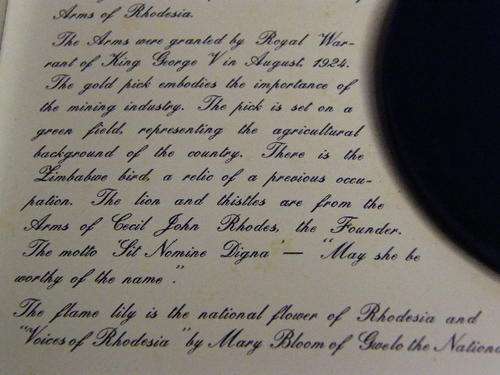 Arms of Rhodesia.
The Arms were granted by Royal War-
rant of King George V in August, 1924.
The gold pick embodies the importance of
the mining industry. The pick is set on a
green field, representing the agricultural
background of the country. There is the
Zimbabwe bird, a relic of a previous occu-
pation. The lion and thistles are from the
Arms of Cecil John Rhodes, the Founder.
The motto 'Sit Nomine Digna' — "May she be
worthy of the name".
The flame lily is the national flower of Rhodesia and
"Voices of Rhodesia" by Mary Bloom of Gwelo the Nationa